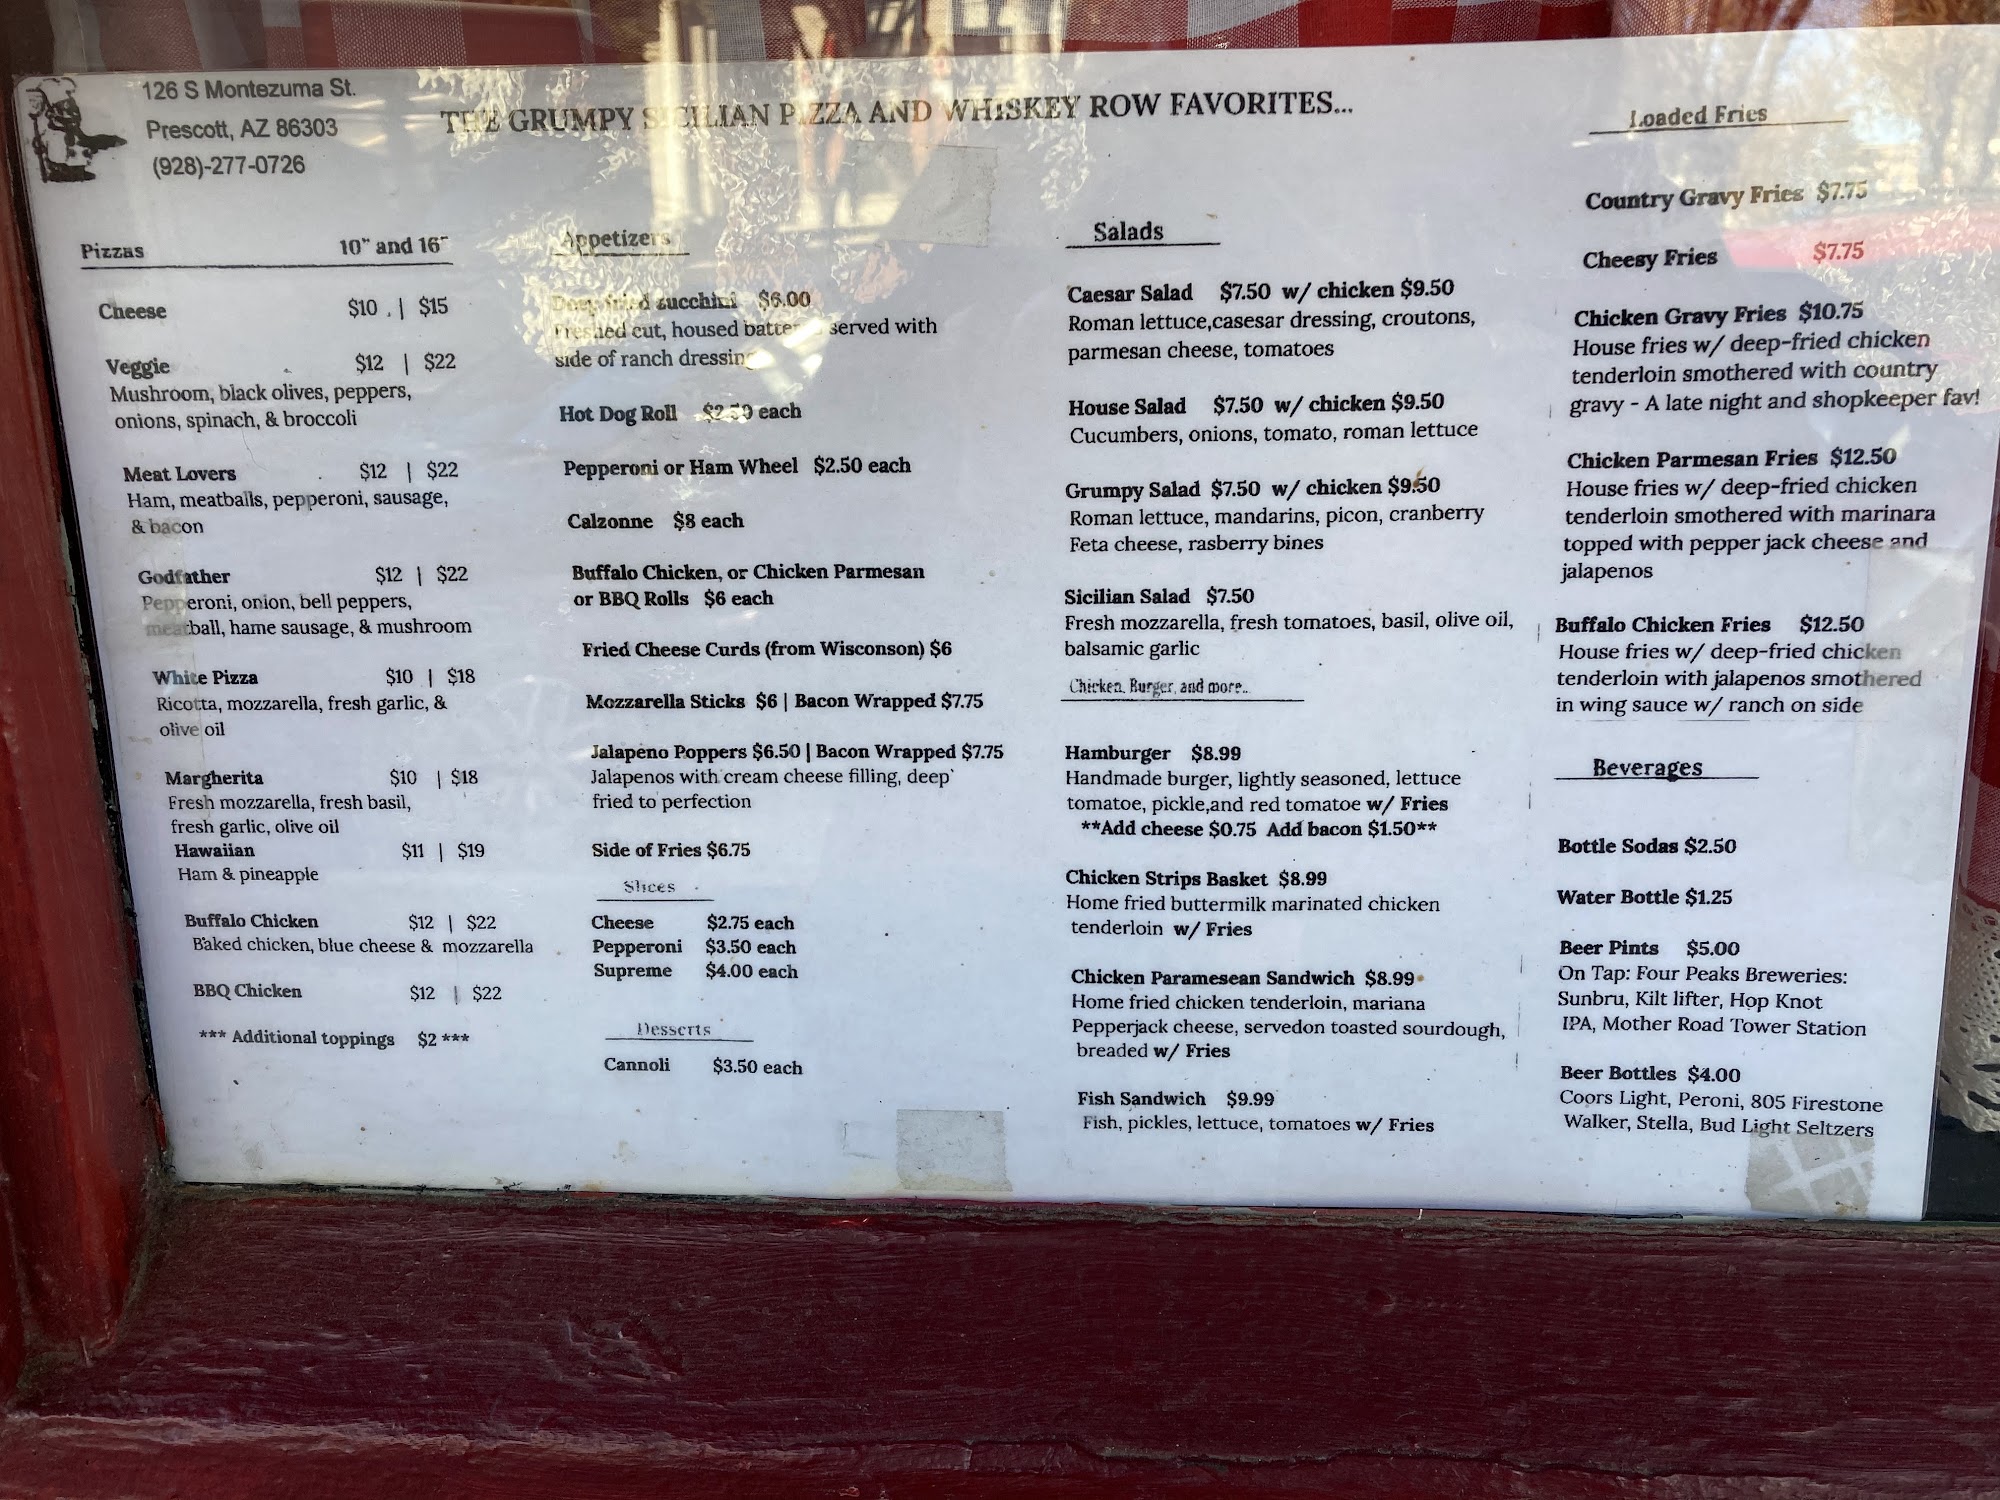 126 S Montezuma St.
Prescott, AZ 86303
(928)-277-0726
THE GRUMPY SICILIAN PIZZA AND WHISKEY ROW FAVORITES...
Pizzas 10" and 16"
Cheese $10 | $15
Veggie $12 | $22
Mushroom, black olives, peppers,
onions, spinach, & broccoli
Meat Lovers $12 | $22
Ham, meatballs, pepperoni, sausage,
& bacon
Godfather $12 | $22
Pepperoni, onion, bell peppers,
meatball, hame sausage, & mushroom
White Pizza $10 | $18
Ricotta, mozzarella, fresh garlic, &
olive oil
Margherita $10 | $18
Fresh mozzarella, fresh basil,
fresh garlic, olive oil
Hawaiian $11 | $19
Ham & pineapple
Buffalo Chicken $12 | $22
Baked chicken, blue cheese & mozzarella
BBQ Chicken $12 | $22
*** Additional toppings $2 ***
Appetizers
Deep fried zucchini $6.00
Freshed cut, housed batter served with
side of ranch dressing
Hot Dog Roll $2.50 each
Pepperoni or Ham Wheel $2.50 each
Calzonne $8 each
Buffalo Chicken, or Chicken Parmesan
or BBQ Rolls $6 each
Fried Cheese Curds (from Wisconson) $6
Mozzarella Sticks $6 | Bacon Wrapped $7.75
Jalapeno Poppers $6.50 | Bacon Wrapped $7.75
Jalapenos with cream cheese filling, deep
fried to perfection
Side of Fries $6.75
Slices
Cheese $2.75 each
Pepperoni $3.50 each
Supreme $4.00 each
Desserts
Cannoli $3.50 each
Salads
Caesar Salad $7.50 w/ chicken $9.50
Roman lettuce,casesar dressing, croutons,
parmesan cheese, tomatoes
House Salad $7.50 w/ chicken $9.50
Cucumbers, onions, tomato, roman lettuce
Grumpy Salad $7.50 w/ chicken $9.50
Roman lettuce, mandarins, picon, cranberry
Feta cheese, rasberry bines
Sicilian Salad $7.50
Fresh mozzarella, fresh tomatoes, basil, olive oil,
balsamic garlic
Chicken, Burger, and more..
Hamburger $8.99
Handmade burger, lightly seasoned, lettuce
tomatoe, pickle,and red tomatoe w/ Fries
**Add cheese $0.75 Add bacon $1.50**
Chicken Strips Basket $8.99
Home fried buttermilk marinated chicken
tenderloin w/ Fries
Chicken Paramesean Sandwich $8.99
Home fried chicken tenderloin, mariana
Pepperjack cheese, servedon toasted sourdough,
breaded w/ Fries
Fish Sandwich $9.99
Fish, pickles, lettuce, tomatoes w/ Fries
Loaded Fries
Country Gravy Fries $7.75
Cheesy Fries $7.75
Chicken Gravy Fries $10.75
House fries w/ deep-fried chicken
tenderloin smothered with country
gravy - A late night and shopkeeper fav!
Chicken Parmesan Fries $12.50
House fries w/ deep-fried chicken
tenderloin smothered with marinara
topped with pepper jack cheese and
jalapenos
Buffalo Chicken Fries $12.50
House fries w/ deep-fried chicken
tenderloin with jalapenos smothered
in wing sauce w/ ranch on side
Beverages
Bottle Sodas $2.50
Water Bottle $1.25
Beer Pints $5.00
On Tap: Four Peaks Breweries:
Sunbru, Kilt lifter, Hop Knot
IPA, Mother Road Tower Station
Beer Bottles $4.00
Coors Light, Peroni, 805 Firestone
Walker, Stella, Bud Light Seltzers